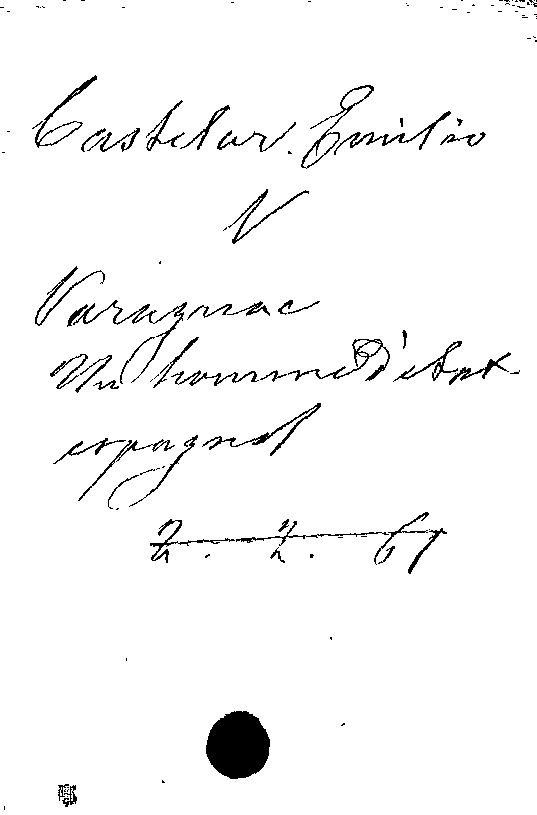 Castelar. Emilio
V
Varagnac
Un homme d'état
espagnol
2. 2. 61